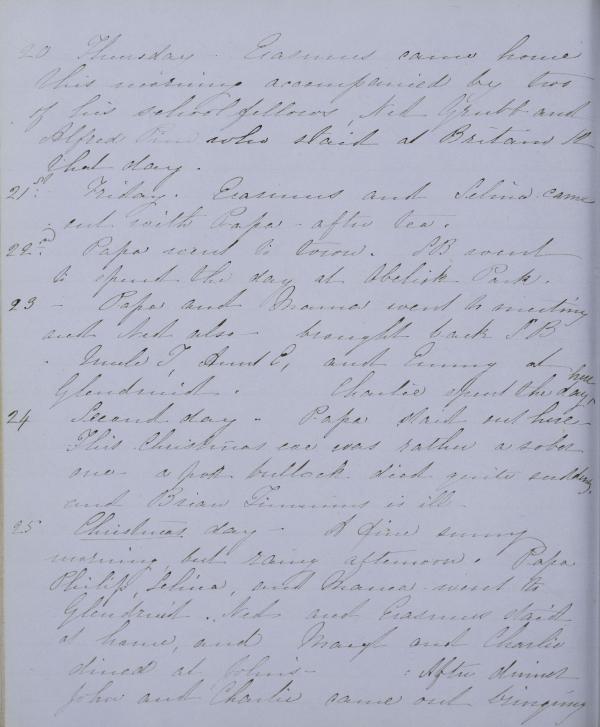 20 Thursday - Erasmus came home
this morning accompanied by two
of his schoolfellows, Ned Grubb and
Alfred Pim who staid at Britain St
that day.
21st. Friday. Erasmus and Selina came
out with Papa - after tea.
22nd. Papa went to town. SB went
to spend the day at Obelisk Park.
23 - Papa and Mama went to meeting
and Ned also - brought back SB
- Uncle T, Aunt E, and Emmy at
Glendruid. Charlie spent the day here
24 Second day - Papa staid out here
This Christmas eve was rather a sober
one - a poor bullock died quite suddenly
and Brian Timmins is ill
25 Christmas day - A fine sunny
morning, but rainy afternoon. Papa
Philip, Selina, and Mama went to
Glendruid. Ned and Erasmus staid
at home, and Mary and Charlie
dined at John's - After dinner
John and Charlie came out bringing